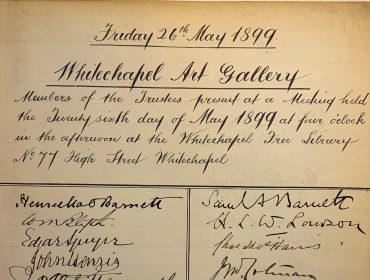 Friday 26th May 1899
Whitechapel Art Gallery
Members of the Trustees present at a Meeting held
the Twenty sixth day of May 1899 at four oclock
in the afternoon at the Whitechapel Free Library
No 77 High Street Whitechapel
Henrietta O Barnett
Edgar Speyer
Saml A Barnett
H. L. W. Lawson